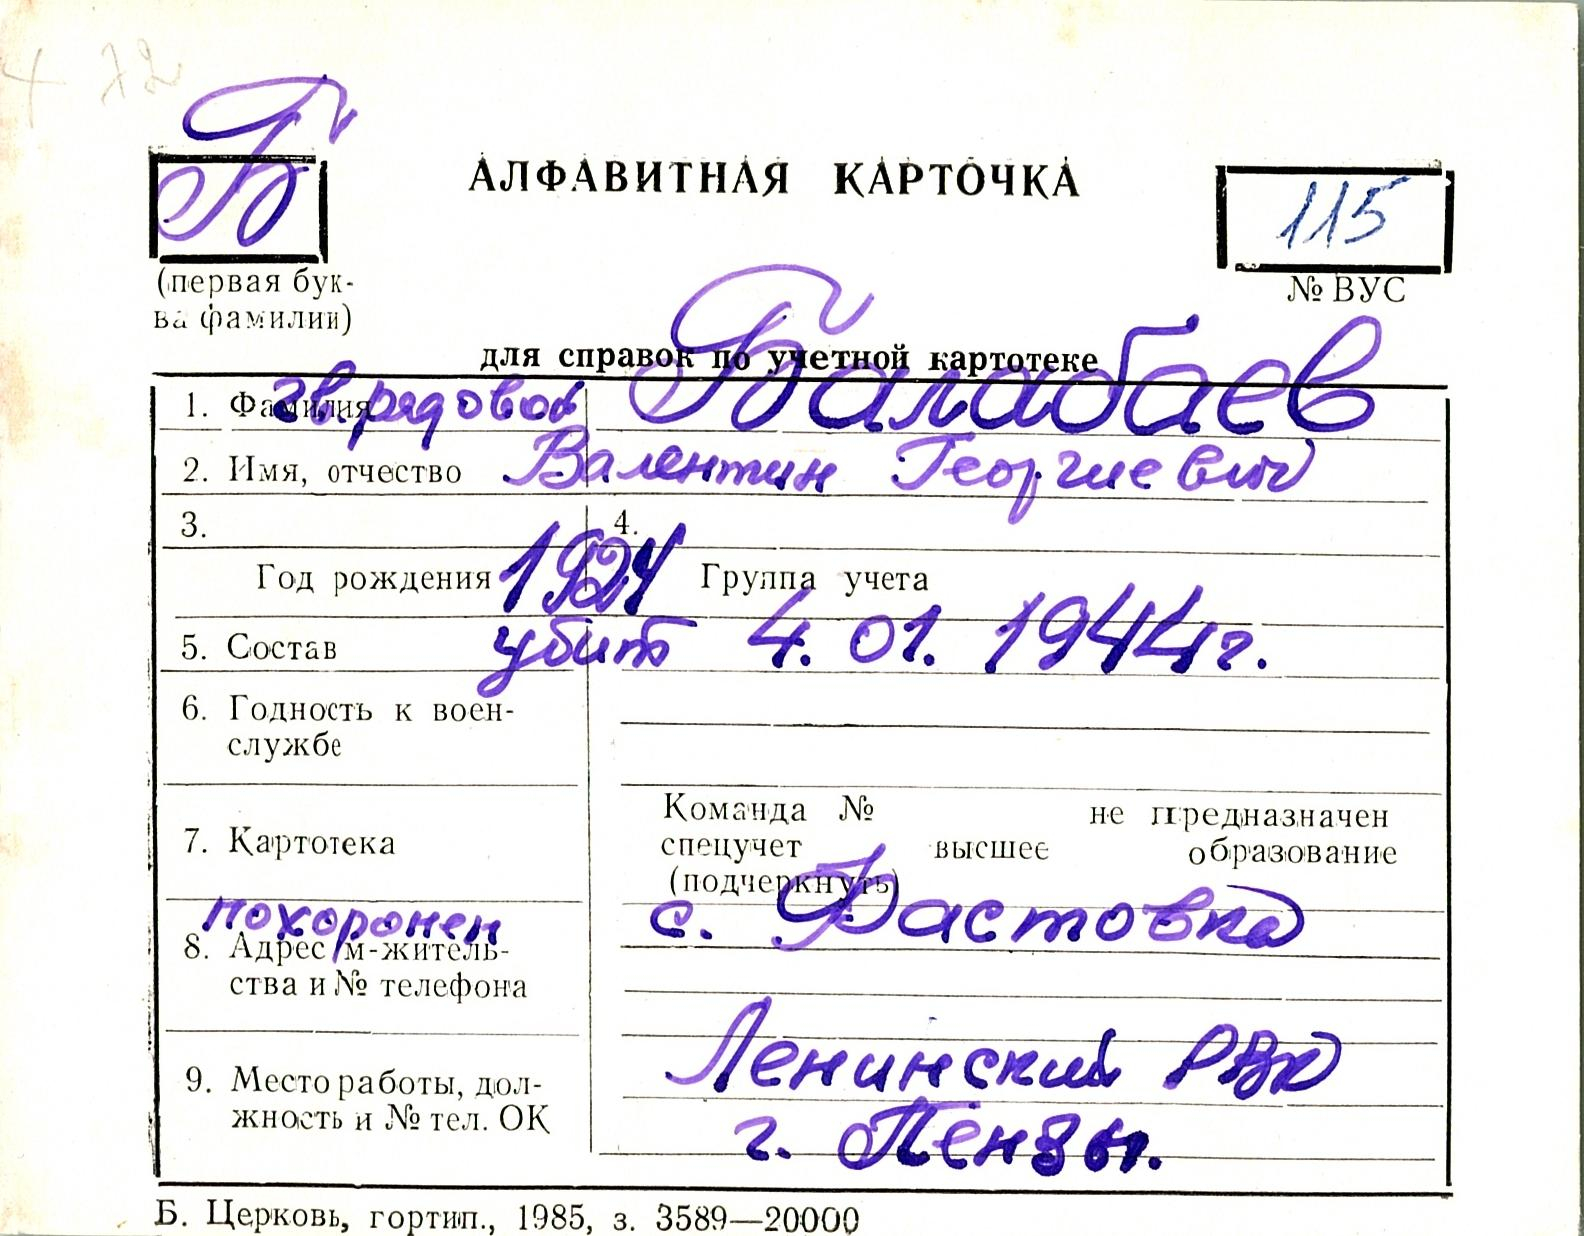 + 72
Б
АЛФАВИТНАЯ КАРТОЧКА
115
(первая бук-
ва фамилии)
№ ВУС
для справок по учетной картотеке
1. Фамилия гв. рядовой Балабаев
2. Имя, отчество Валентин Георгиевич
3. 4.
Год рождения 1924 Группа учета
5. Состав убит 4.01.1944г.
6. Годность к воен-
службе
Команда № не предназначен
7. Картотека спецучет высшее образование
(подчеркнуть)
похоронен с. Фастовка
8. Адрес м-житель-
ства и № телефона
Ленинский РВК
9. Место работы, дол-
жность и № тел. ОК г. Пензы.
Б. Церковь, гортип., 1985, з. 3589—20000